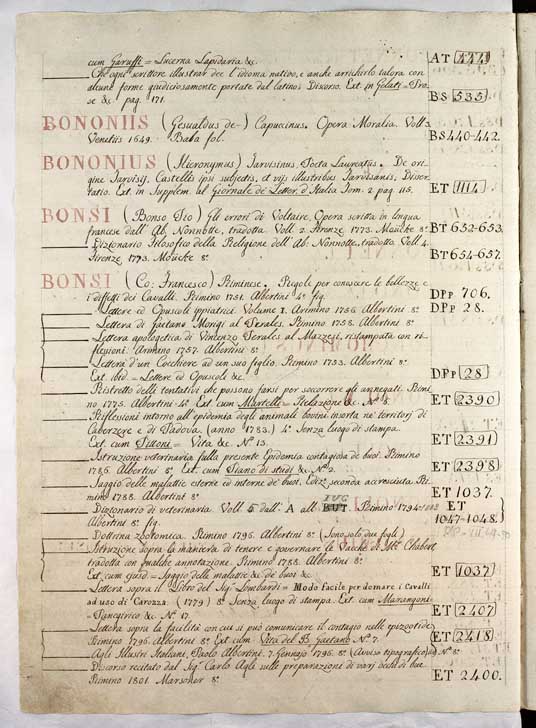 cum Garuffi = Lucerna Lapidaria &c. AT 444
Che ogni scrittore illustrar dee l'idioma nativo, e anche arrichirlo talora con
alcune forme giudiciosamente portate dal latino. Discorso. Ext. in Gelati = Pro-
se &c. pag. 171. BS 535
BONONIIS (Gesualdus de-) Capuccinus. Opera Moralia. Voll. 3.
Venetiis 1649. Baba fol. BS 440-442.
BONONIUS (Hieronymus) Tarvisinus Poeta Laureatus. De ori-
gine Tarvisij, Castellis ipsi subjectis, et vijs illustribus Tarvisanis, Disser-
tatio. Ext. in Supplem. al Giornale de' Letter. d'Italia Tom. 2 pag. 115. ET 1114
BONSI (Bonso Pio) Gli errori di Voltaire, Opera scritta in lingua
francese dall' Ab. Nonnotte, tradotta Voll. 2. Firenze 1773. Moücke 8º BT 652-653.
Dizionario Filosofico della Religione dell' Ab. Nonnotte, tradotta Voll. 4.
Firenze 1773. Moücke 8º BT 654-657.
BONSI (Co: Francesco) Riminese. Regole per conoscere le bellezze e
i diffetti dei Cavalli. Rimino 1751. Albertini 4º fig. DPP 706.
Lettere ed Opuscoli ippiatrici. Volume I. Arimino 1756. Albertini 8º DPP 28.
Lettera di Gaetano Morigi al Perales. Rimino 1758. Albertini 8º
Lettera apologetica di Vincenzo Perales al Mazzesi, ristampata con ri-
flessioni. Arimino 1757. Albertini 8º
Lettera d'un Cocchiere ad un suo figlio. Rimino 1753. Albertini 8º
Ext. ibid = Lettere ed Opuscoli &c. DPP 28
Ristretto delli tentativi che possono farsi per soccorrere gli annegati. Rimi-
no 1775. Albertini 4º Ext. cum Martelli = Relazione &c. Nº 5. ET 2390
Riflessioni intorno all'epidemia degli animali bovini insorta ne' territorj di
Caverzere e di Padova. (anno 1783.) 4º Senza luogo di stampa.
Ext. cum Pittoni = Vita &c. Nº 13. ET 2391
Istruzione veterinaria sulla presente Epidemia contagiosa de' buoi. Rimino
1786. Albertini 8º Ext. cum Piano di studi &c. Nº 2. ET 2398
Saggio delle malattie esterne ed interne de' buoi. Ediz. seconda accresciuta. Ri-
mino 1788. Albertini 8º ET 1037.
Dizionario di veterinaria. Voll. 5 dall' A all IUG BUT. Rimino 1794 ET
Albertini 8º fig. 1047-1048.
Dottrina zootomica. Rimino 1796. Albertini 8º (Sono solo due fogli)
Istruzione sopra la maniera di tenere e governare le Vacche di Mr. Chabert
tradotta con qualche annotazione. Rimino 1788. Albertini 8º
Ext. cum quid = Saggio delle malattie &c. de' buoi &c. ET 1037
Lettera sopra il Libro del Sigr. Lombardi = Modo facile per domare i Cavalli
ad uso di Carozza. (1779) 8º Senza luogo di stampa. Ext. cum Marangoni
= Panegirico &c. Nº 17. ET 2407
Lettera sopra la facilità con cui si può comunicare il contagio nelle epizootide.
Rimino 1796. Albertini 8º Ext. cum Vita del B. Gaetano Nº 7. ET 2418
Agli Illustri Italiani, Paolo Albertini. 7. Gennajo 1796. 8º (Avviso tipografico) Nº 8º
Discorso recitato dal Sig. Carlo Agli sulle preparazioni di varj occhi di bue
Rimino 1801. Marsoner 8º ET 2400.